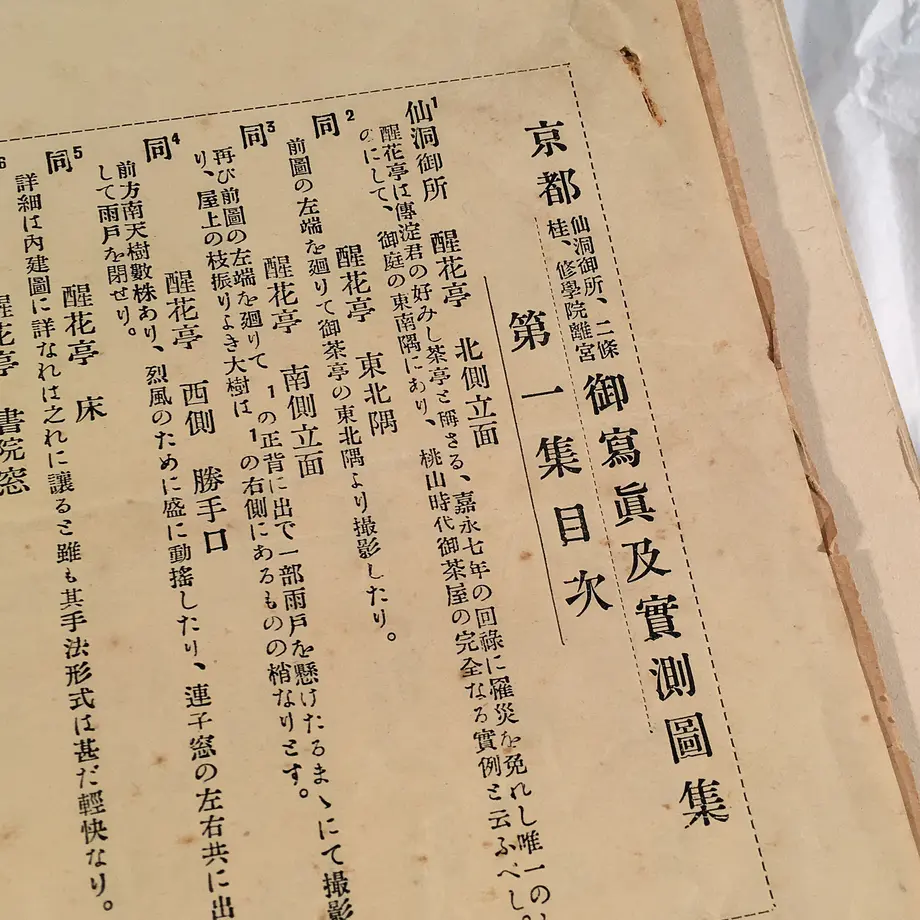 京都 仙洞御所、二條
桂、修學院離宮 御寫眞及實測圖集
第一集目次
1 仙洞御所 醒花亭 北側立面
醒花亭は傳淀君の好みし茶亭と稱さる、嘉永七年の回祿に罹災を免れし唯一のも
のにして、御庭の東南隅にあり、桃山時代御茶屋の完全なる實例と云ふべし。
2 同 醒花亭 東北隅
前圖の左端を廻りて御茶亭の東北隅より撮影したり。
3 同 醒花亭 南側立面
再び前圖の左端を廻りて 1の正背に出で一部雨戸を懸けたるまゝにて撮影
り、屋上の枝振りよき大樹は 1の右側にあるものの梢なりとす。
4 同 醒花亭 西側 勝手口
前方南天樹數株あり、烈風のために盛に動搖したり、連子窓の左右共に出
して雨戸を閉せり。
5 同 醒花亭 床
詳細は內建圖に詳なれは之れに讓ると雖も其手法形式は甚だ輕快なり。
6 醒花亭 書院窓